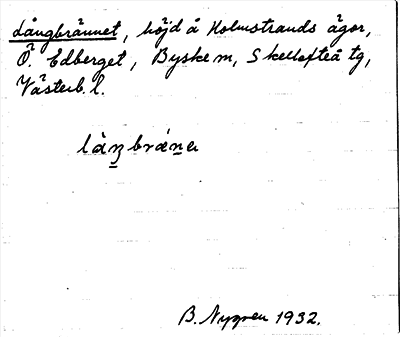 Långbrännet, höjd å Holmstrands ägor,
Ö. Edberget, Byske m, Skellefteå tg,
Västerb. l.
B. Nygren 1932.